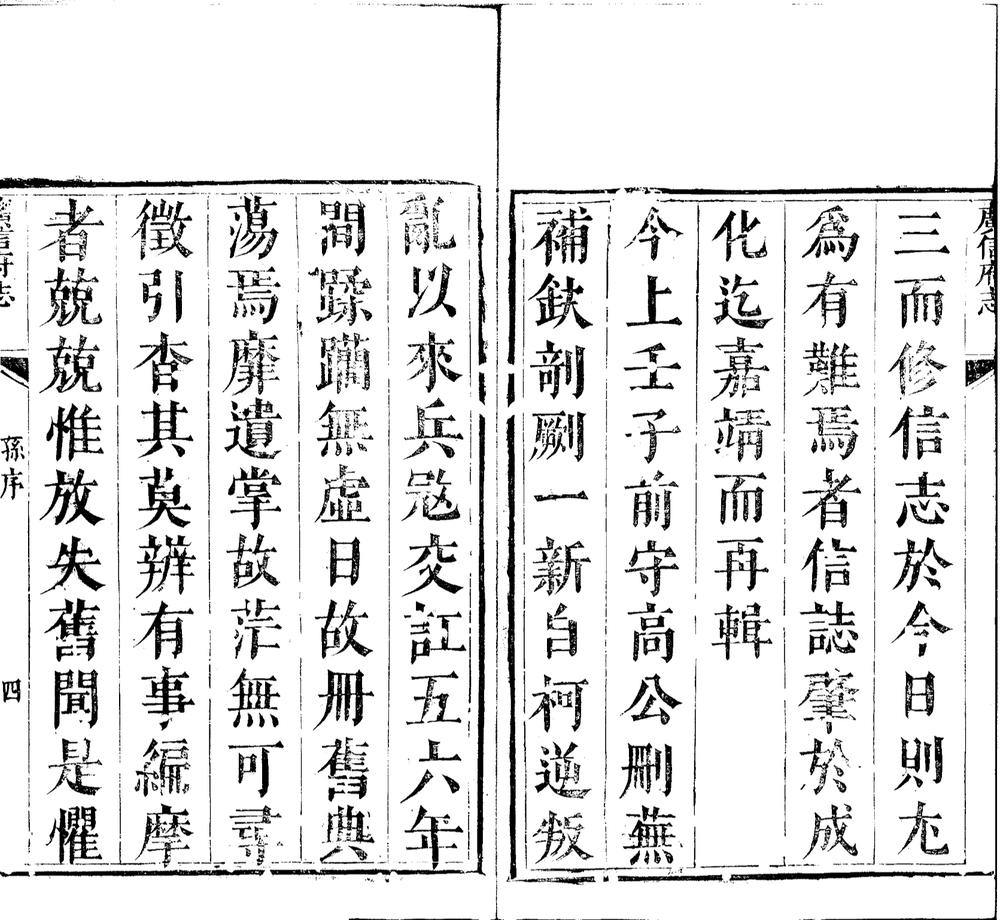 廣信府志
三而修信志於今日則尢
爲有難焉者信誌肇於成
化迄嘉靖而再輯
今上壬子前守高公刪蕪
補缺剞劂一新自柯逆叛
亂以來兵寇交訌五六年
間蹂躪無虛日故冊舊典
蕩焉靡遺掌故茫無可尋
徵引杳其莫辨有事編摩
者兢兢惟放失舊聞是懼
廣信府志
孫序
四